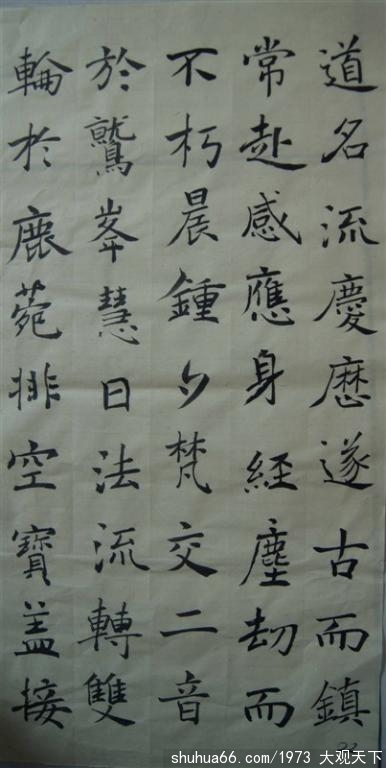 道名流慶歷遂古而鎮
常赴感應身經塵劫而
不朽晨鍾夕梵交二音
於鷲峯慧日法流轉雙
輪於鹿菀排空寶盖接
shuhua66.com/1973 大观天下